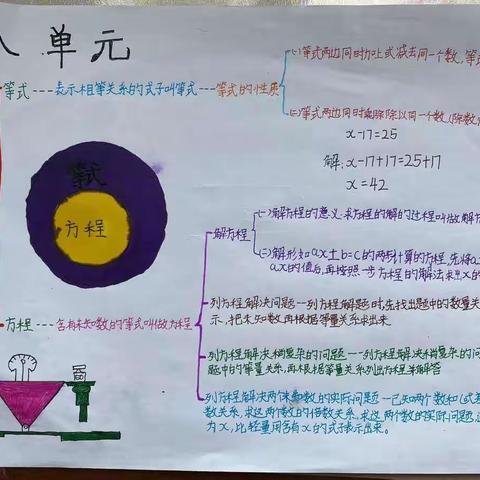 单元
(一)等式两边同时加上或减去同一个数,等式
等式---表示相等关系的式子叫等式---等式的性质
(二)等式两边同时乘或除以同一个数(除数
x-17=25
解:x-17+17=25+17
x=42
等式
方程
(一)解方程的意义:求方程的解的过程叫做解方
解方程
(二)解形如ax±b=c的两步计算的方程,先将a
ax的值后,再按照一步方程的解法求出x的
列方程解决问题---列方程解题时,先找出题中的数量关
示,把未知数,再根据等量关系求出来
方程---含有未知数的等式叫做方程
列方程解决稍复杂的问题---列方程解决稍复杂的问
题中的等量关系,再根据等量关系列出方程来解答
列方程解决两个未知数的实际问题---已知两个数和(或差
数关系,求这两个数的倍数关系,求这两个数的实际问题,
为x,比轻量用含有x的式子表示出来。